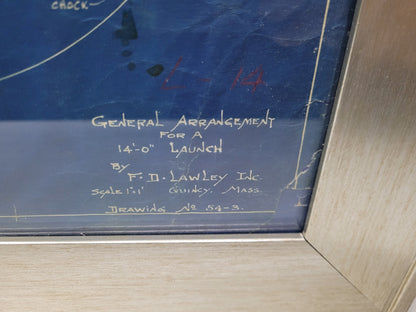 CHOCK
L - 14
GENERAL ARRANGEMENT
FOR A
14'-0" LAUNCH
BY
F. D. LAWLEY INC.
SCALE 1":1' QUINCY, MASS.
DRAWING No 54-3.